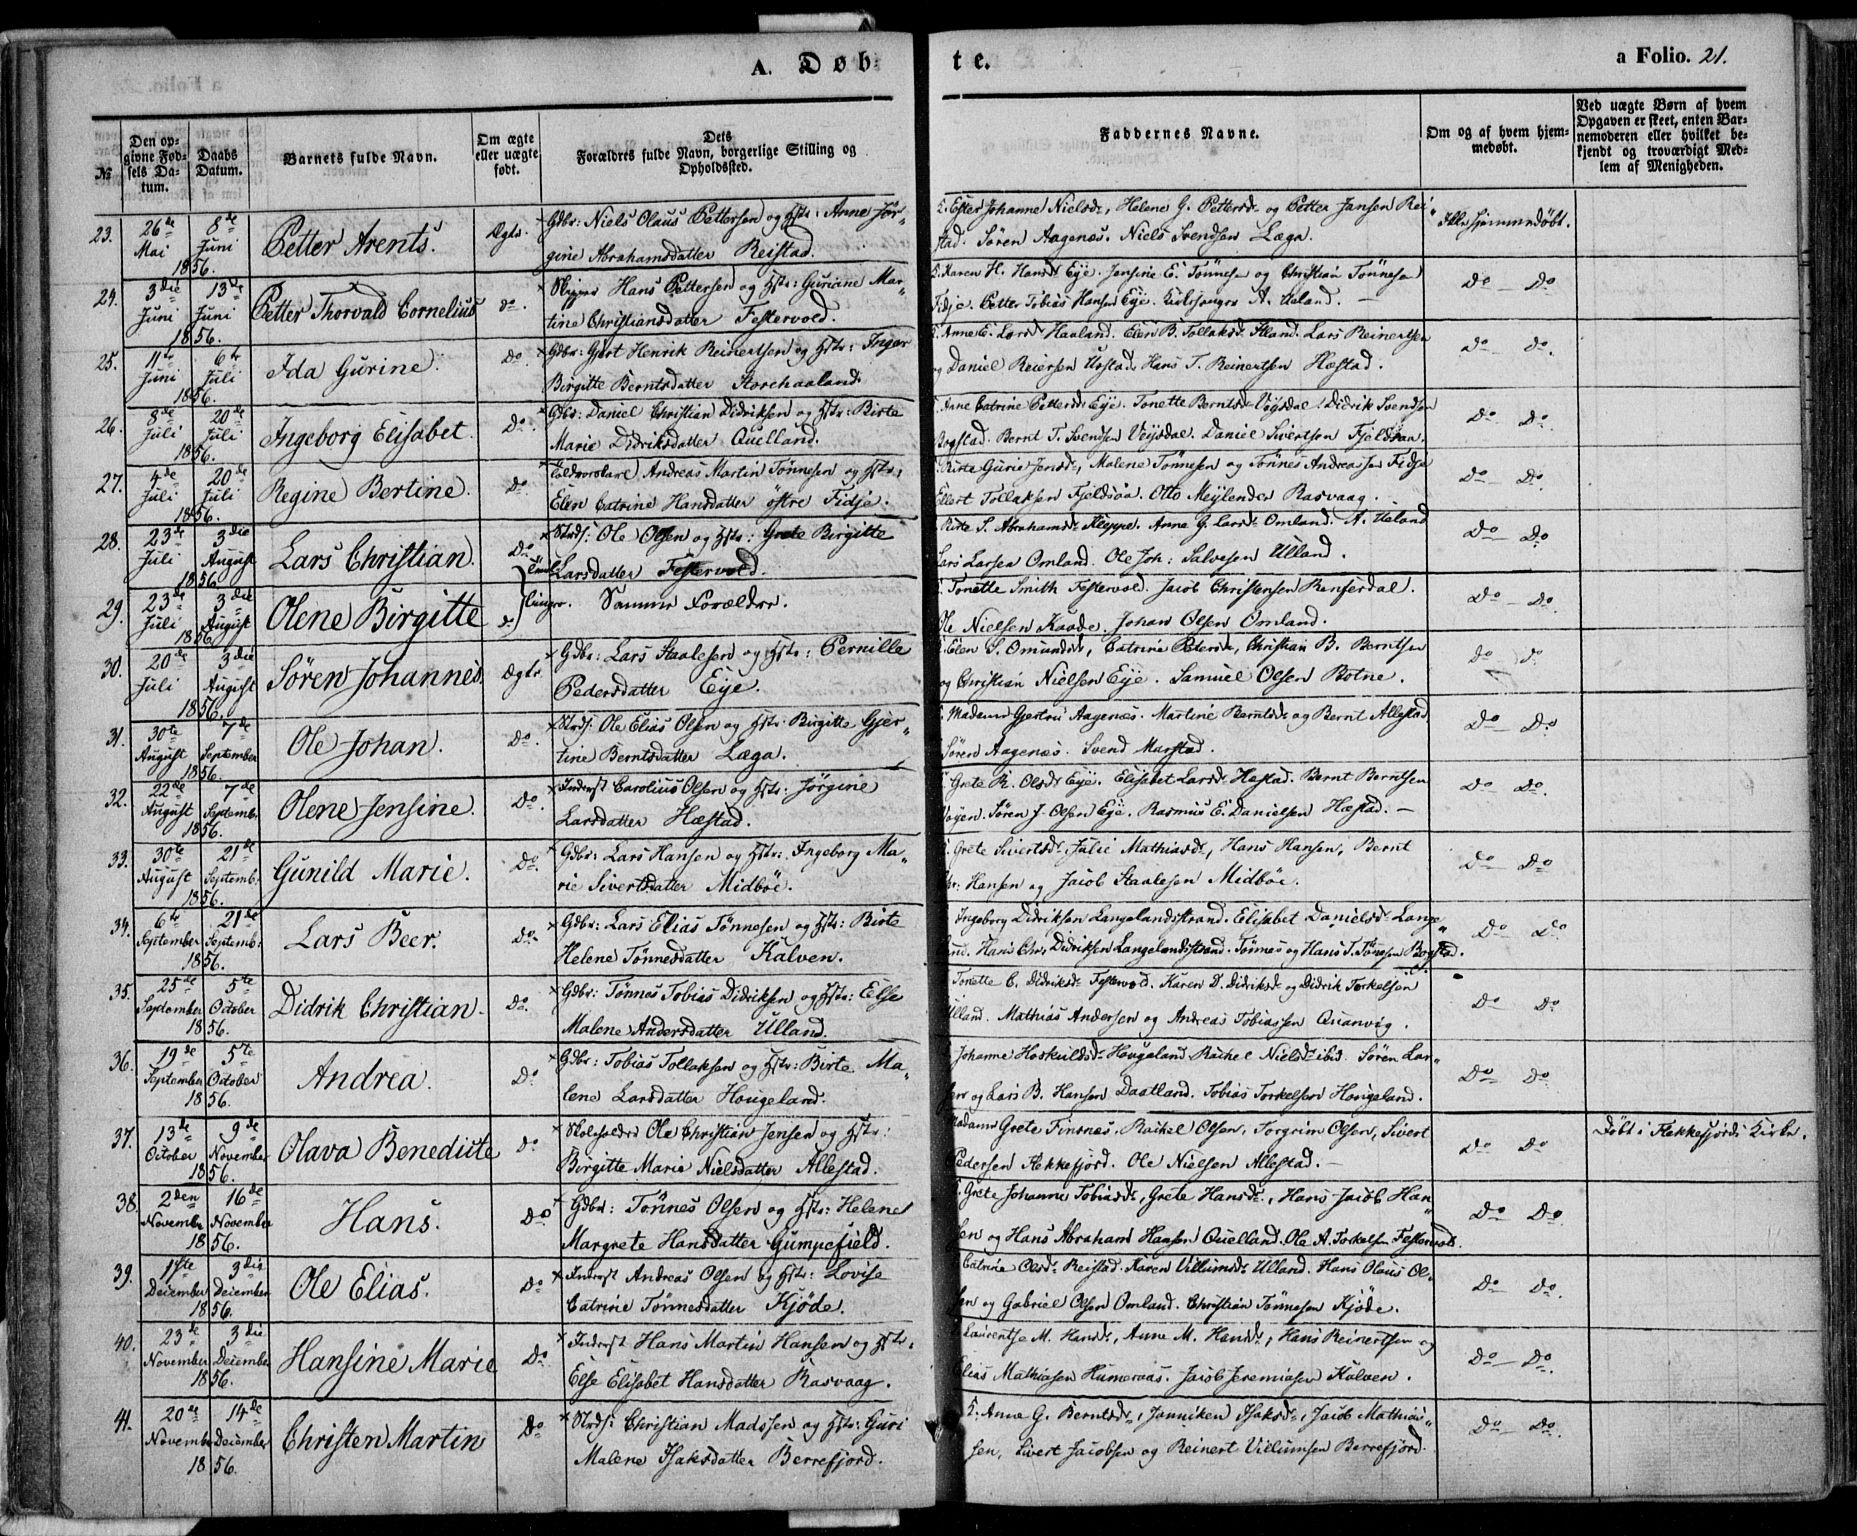 A. Døbte.
a Folio. 21.
No
Den opgivne Fødsels Datum.
Daabs Datum.
Barnets fulde Navn.
Om ægte eller uægte født.
Dets Forældres fulde Navn, borgerlige Stilling og Opholdssted.
Faddernes Navne.
Om og af hvem hjemmedøbt.
Ved uægte Børn af hvem Opgaven er skeet, enten Barnemoderen eller hvilket bekjendt og troværdigt Medlem af Menigheden.
23. 26de Mai 8de Juni 1856. Petter Arents. Ægte.
Gdbr: Niels Olaus Pettersen og Hstr: Anne Jør-
gine Abrahamsdatter Reistad.
Ester Johanne Nielsd., Helene G. Pettersd. og Petter Jansen Rei-
stad. Søren Aagenæs. Niels Svendsen Læga.
Ikke hjemmedøbt.
24. 3die Juni 13de Juni 1856. Petter Thorvald Cornelius do.
Skipper Hans Pettersen og Hstr: Guriane Mar-
tine Christiansdatter Festervold.
Karen H. Hansd. Eye. Jensine E. Tönnesen og Christian Tönnesen
Fidje. Petter Tobias Hansen Eye. Kirkesanger A. Ueland.
Do Do
25. 11te Juni 6te Juli 1856. Ida Gurine. Do
Gdbr: Gjert Henrik Reinertsen og Hstr: Inger
Birgitte Berntsdatter Storehaaland.
Anne E. Larsd. Haaland. Elen B. Tollaksd. Stland. Lars Reinertsen
og Daniel Reiersen Urstad. Hans T. Reinertsen Hæstad.
Do Do.
26. 8de Juli 20de Juli 1856. Ingeborg Elisabet. Do.
Gdbr: Daniel Christian Didriksen og Hstr: Birte
Marie Didriksdatter Quelland.
Anne Catrine Pettersd. Eye. Tonette Berntsd. Veisdal. Didrik Svendsen
Bogstad. Bernt T. Svendsen Veisdal. Daniel Sivertsen Fjeldsaa.
Do Do.
27. 4de Juli 20de Juli 1856. Regine Bertine. Do
Andreas Martin Tönnesen og Hstr:
Elen Catrine Hansdatter östre Fidje.
Birte Gurie Jensd., Malene Tönnesen og Tönnes Andreassen Fidje
Ellert Tollaksen Fjeldsaa. Otto Meylender Rasvaag.
Do Do.
28. 23de Juli 3die August 1856. Lars Christian. Do
Strds: Ole Olsen og Hstr: Grete Birgitte
Larsdatter Festervold.
Birte S. Abrahamsd. Kleppe. Anne G. Larsd. Omland. A. Ueland
Lars Larsen Omland. Ole Joh: Salvesen Ulland.
Do Do
29. 23de Juli 3die August 1856. Olene Birgitte do
Tvillinger.
Samme Forældre.
Tonette Smith Festervold. Jacob Christensen Renferdal.
Ole Nielsen Kaade. Johan Olsen Omland.
Do Do.
30. 20de Juli 3die August 1856. Søren Johannes. Ægte.
Gdbr: Lars Staalesen og Hstr: Pernille
Pedersdatter Eye.
Elen S. Omundsd., Catrine Pedersd., Christian B. Berntsen
og Christian Nielsen Eye. Samuel Olsen Botne.
Do Do.
31. 30te August 7de September 1856. Ole Johan. Do.
Strds: Ole Elias Olsen og Hstr: Birgitte Gjer-
tine Berntsdatter Læga.
Madame Gjertru Aagenæs. Martine Berntsd. og Bernt Allestad
Søren Aagenæs. Svend Marstad.
Do Do.
32. 22de August 7de Septembr 1856. Olene Jensine. Do.
Inderst Carolius Olsen og Hstr: Jørgine
Larsdatter Hæstad.
Grete R. Olsd. Eye. Elisabet Larsd. Hæstad. Bernt Berntsen
Søren J. Olsen Eye. Rasmus E. Danielsen Hæstad.
Do Do.
33. 30te August 21de Septemb: 1856. Gunild Marie. Do.
Gdbr: Lars Hansen og Hstr: Ingeborg Ma-
rie Sivertsdatter Midböe.
Grete Sivertsd. Julie Mathiasd., Hans Hansen, Bernt
Chr: Hansen og Jacob Staalesen Midböe.
Do Do.
34. 6te September 21de Septemb: 1856. Lars Beer. Do.
Gdbr: Lars Elias Tönnesen og Hstr: Birte
Helene Tönnesdatter Kalven.
Ingeborg Didriksen Langelandsstrand. Elisabet Danielsd. Lange-
land. Hans Chr. Didriksen Langelandsstrand. Tönnes og Hans T. Tönnesen Bogstad.
Do Do
35. 25de September 5te October 1856. Didrik Christian. Do.
Gdbr: Tönnes Tobias Didriksen og Hstr: Else
Malene Andersdatter Ulland.
Tonette C. Didriksd. Festervold. Karen D. Didriksd. og Didrik Torkelsen
Ulland. Mathias Andersen og Andreas Tobiassen Quanvig.
Do Do.
36. 19de September 5te October 1856. Andrea. Do
Gdbr: Tobias Tollaksen og Hstr: Birte Ma-
lene Larsdatter Hougeland.
Johanne Hoskuldsd. Hougeland. Rachel Nielsd. ibid. Søren Lar-
sen og Lars B. Hansen Daatland. Tobias Torkelsen Hougeland.
Do Do.
37. 13de October 9de November 1856. Olava Benedicte Do
Skoleholder Ole Christian Jensen og Hstr:
Birgitte Marie Nielsdatter Allestad.
Madame Grete Finsnæs. Rachel Olsen, Torgrim Olsen, Sivert
Pedersen Flekkefjord. Ole Nielsen Allestad.
Do Do.
Døbt i Flekkefjords Kirke.
38. 2den November 16de November 1856. Hans. Do
Gdbr: Tönnes Olsen og Hstr: Helene
Margrete Hansdatter Gumpefjeld.
Grete Johanne Tobiasd., Grete Hansd., Hans Jacob Han-
sen og Hans Abraham Hansen Quelland. Ole A. Torkelsen Festervold.
Do Do.
39. 1ste December 3die December 1856. Ole Elias. Do
Inderst Andreas Olsen og Hstr: Lovise
Catrine Tönnesdatter Kjöde.
Catrine Olsd. Reistad. Karen Villumsd. Ulland. Hans Olaus Ol-
sen og Gabriel Olsen Omland. Christian Tönnesen Kjöde.
Do Do.
40. 23de November 3die December 1856. Hansine Marie Do.
Inderst Hans Martin Hansen og Hstr.
Else Elisabet Hansdatter Rasvaag.
Laurentse M. Hansd., Anne M. Hansd., Hans Reinertsen og
Elias Mathiasen Humervaas. Jacob Jeremiasen Kalven.
Do Do.
41. 20de November 14de December 1856. Christen Martin Do
Strds: Christian Madssen og Hstr: Guri
Malene Isaksdatter Berrefjord.
Anne G. Berntsd., Janniken Isaksd., Jacob Mathias-
sen, Sivert Jacobsen og Reinert Villumsen Berrefjord.
Do Do.